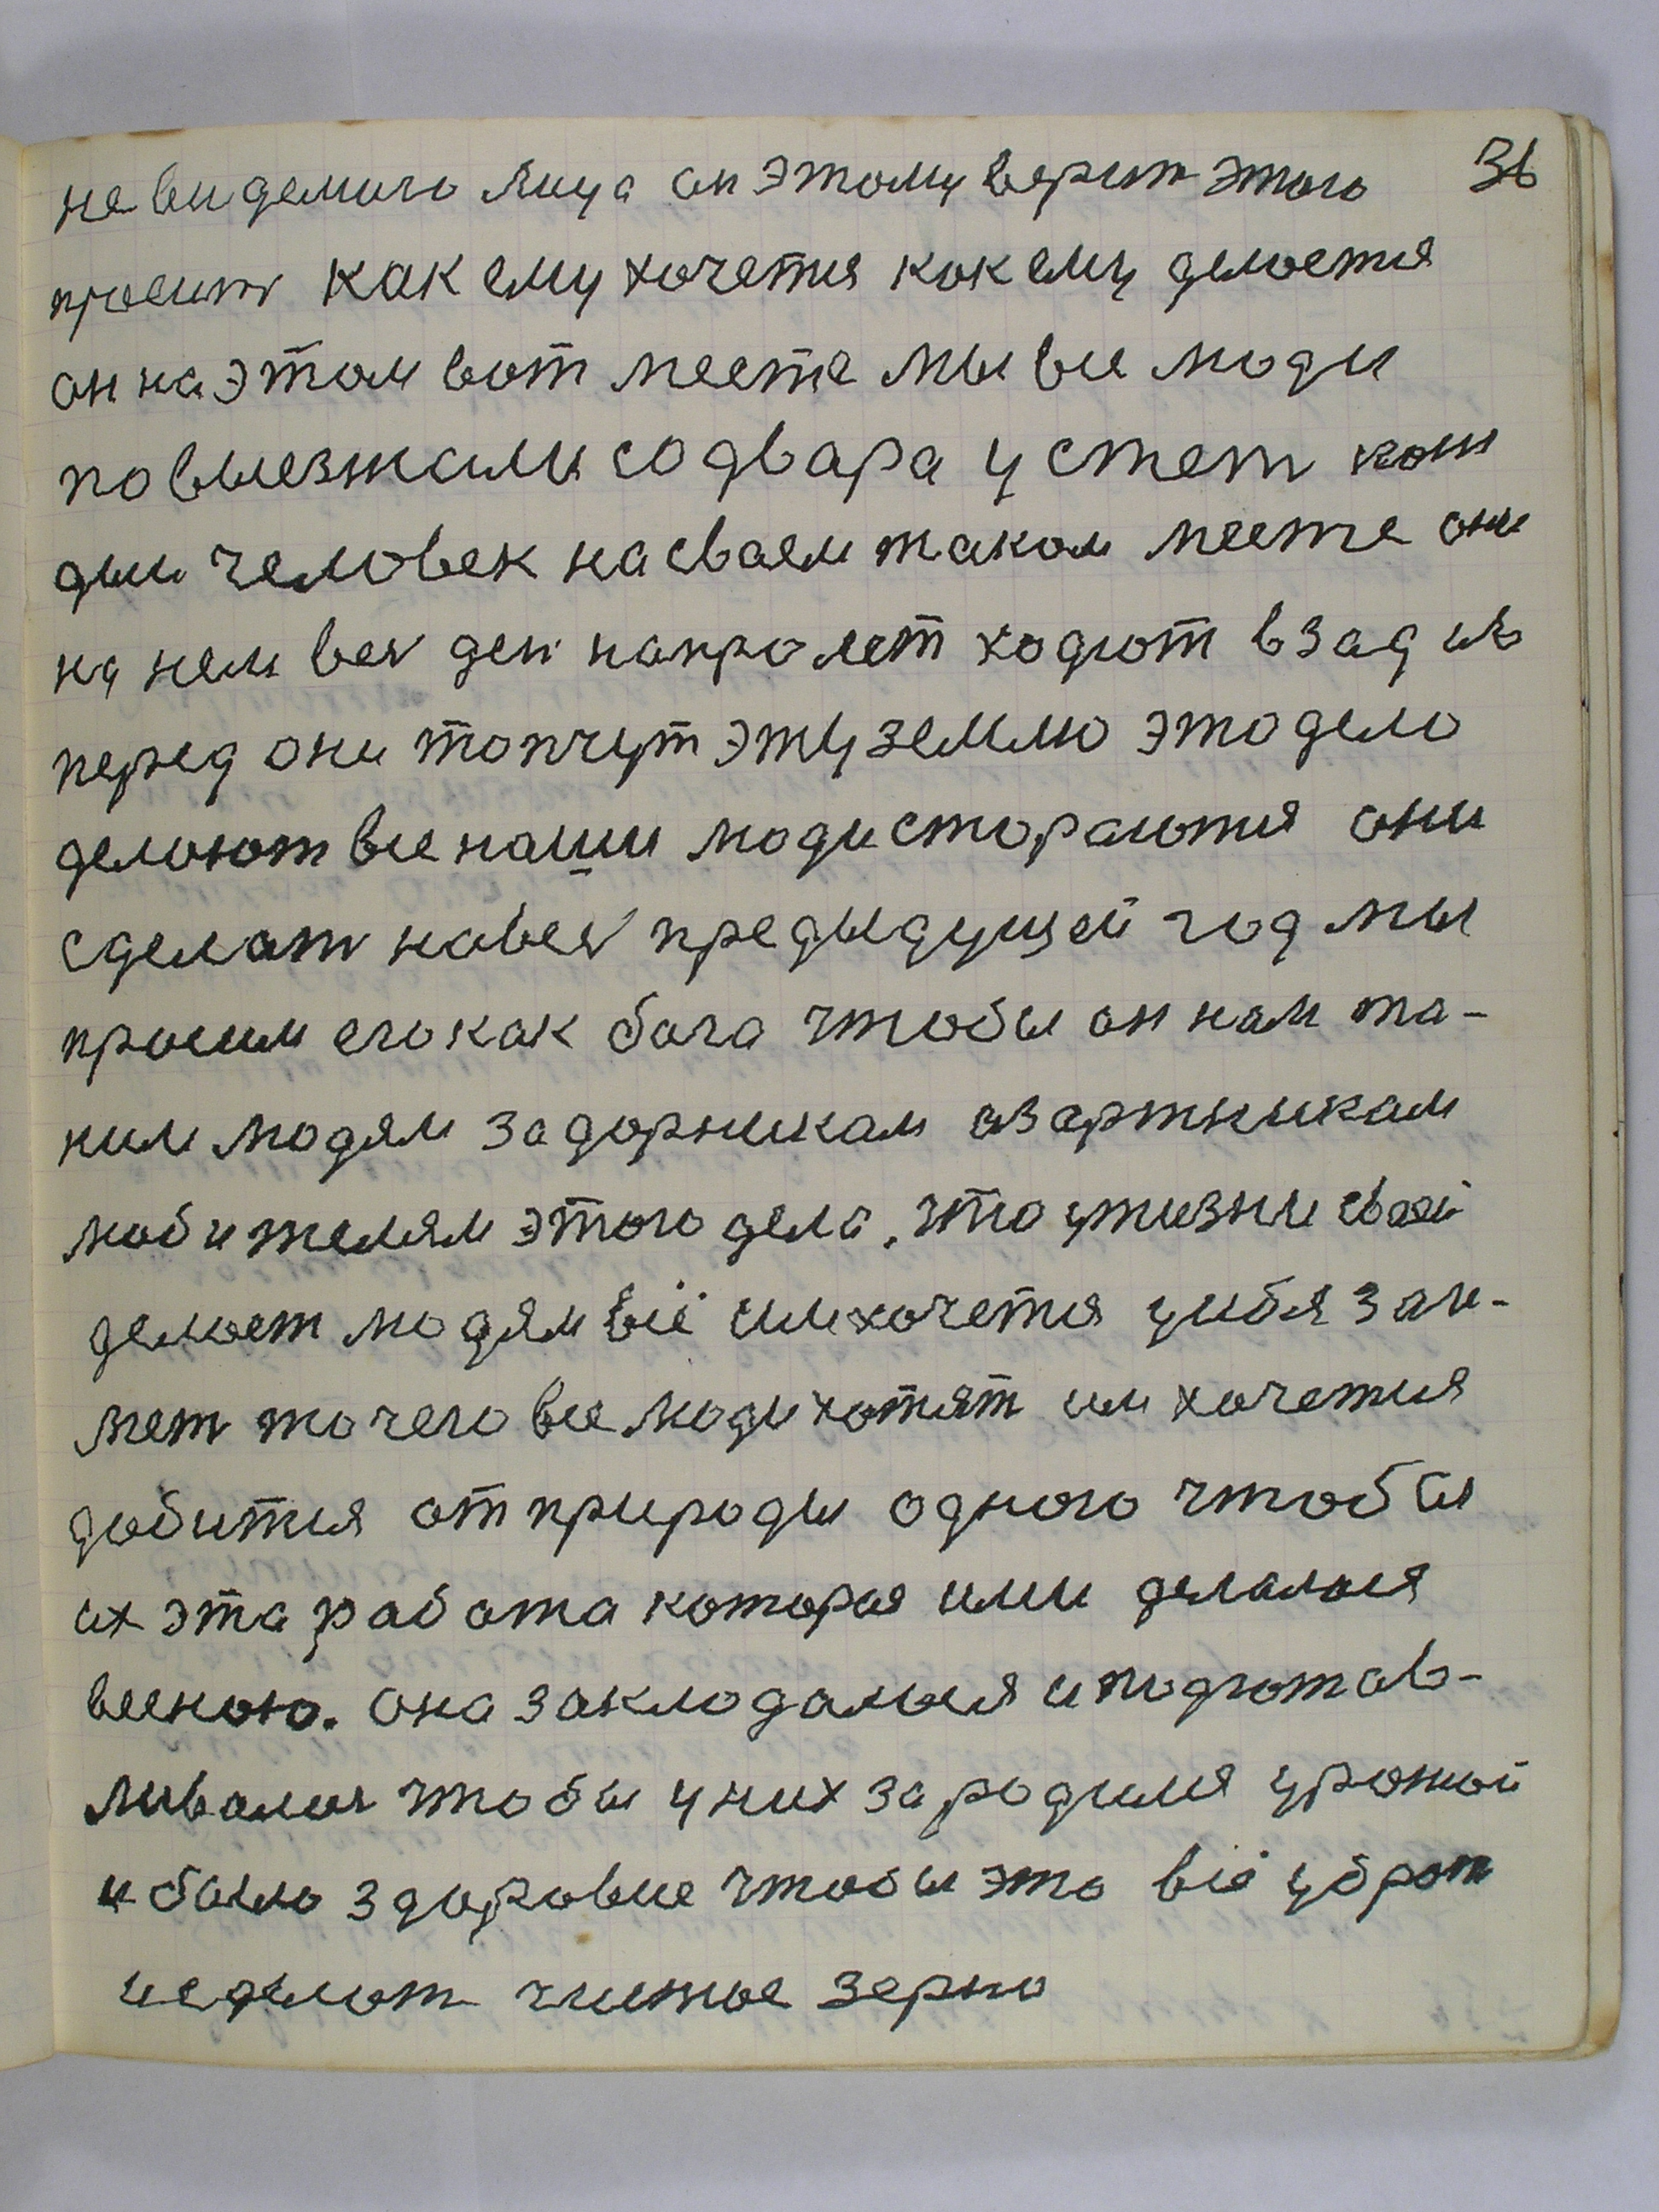 невидемаго лица он этому верит этого 36
просит как ему хочется как ему делоется
он на этом вот месте мы все люди
повыезжали со двара у степ кож
дый человек на сваем таком месте они
на нем весь ден напролет ходют взад и в
перед они топчут эту землю это дело
делоют все наши люди стораются они
сделат навесь предыдущей год мы
просим его как бога чтобы он нам та-
ким людям задорникам азартникам
любителям этого дела, что ужизни сваей
делоет людям всё им хочется у себя зай-
мет то чего все люди хотят им хочется
добится от природы одного чтобы
их эта работа которая ими делалася
весною. она заклодалися и подготав-
ливалось чтобы у них зародился урожой
и было здоровие чтобы это всё убрат
исделат чистое зерно